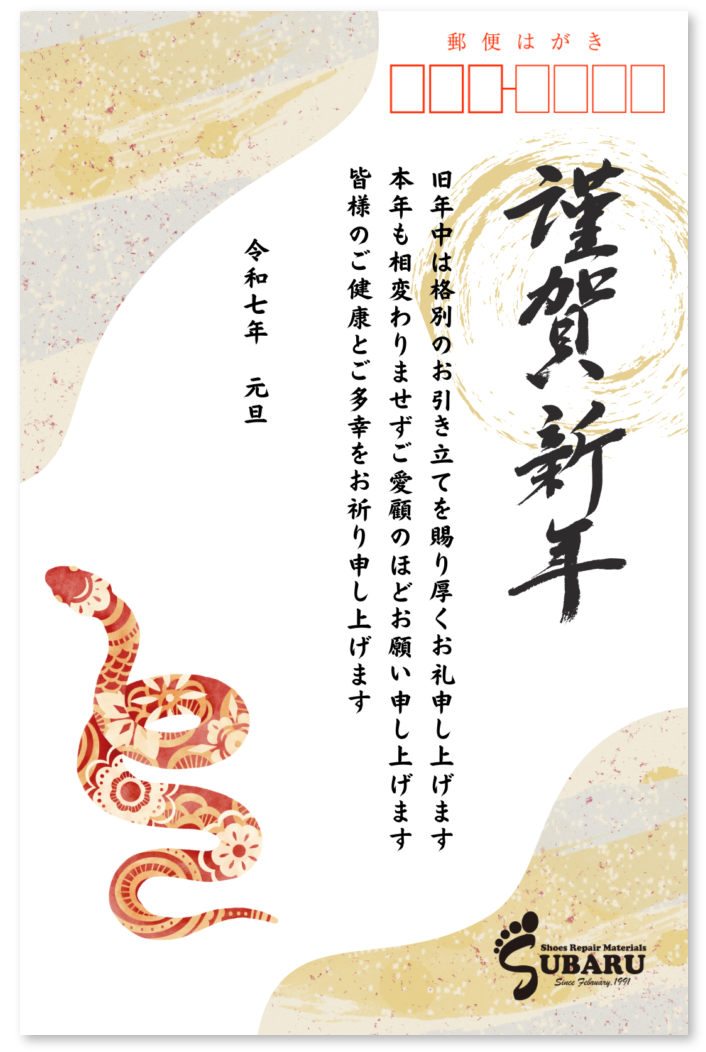 郵便はがき
謹賀新年
旧年中は格別のお引き立てを賜り厚くお礼申し上げます
本年も相変わりませずご愛顧のほどお願い申し上げます
皆様のご健康とご多幸をお祈り申し上げます
令和七年　元旦
Shoes Repair Materials
SUBARU
Since February.1991